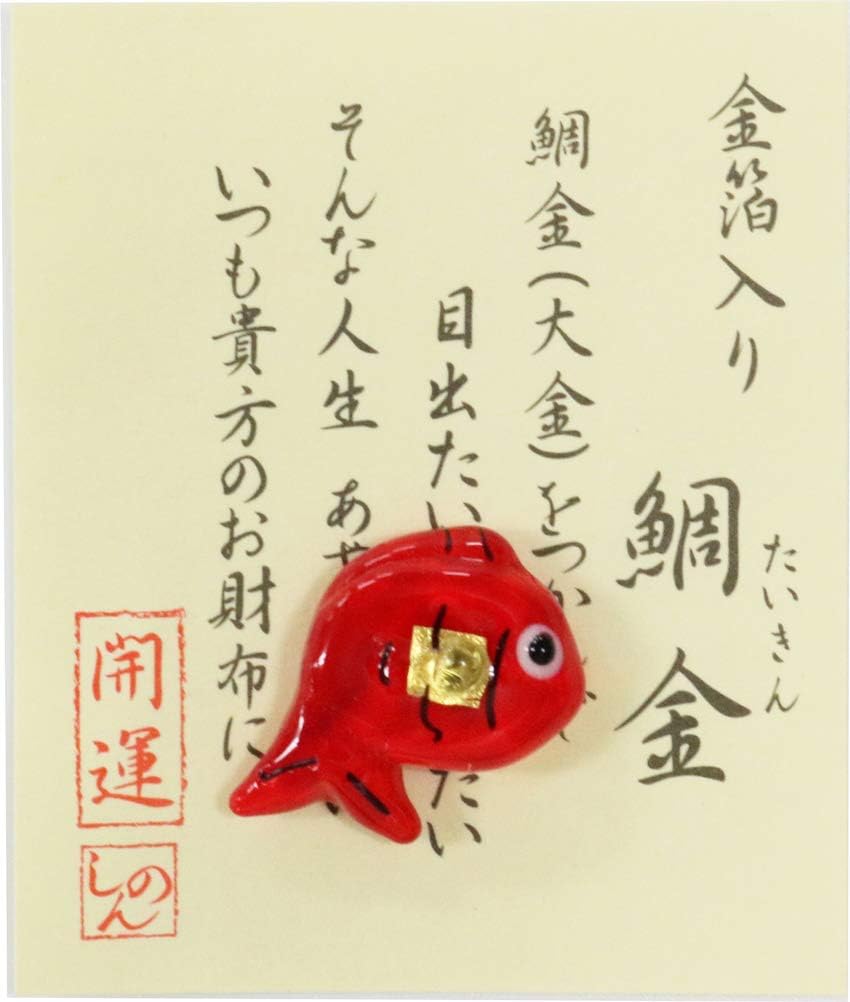 金箔入り
鯛金
たいきん
鯛金(大金)をつか
目出たい たい
そんな人生 あ
いつも貴方のお財布に
開運
しのん